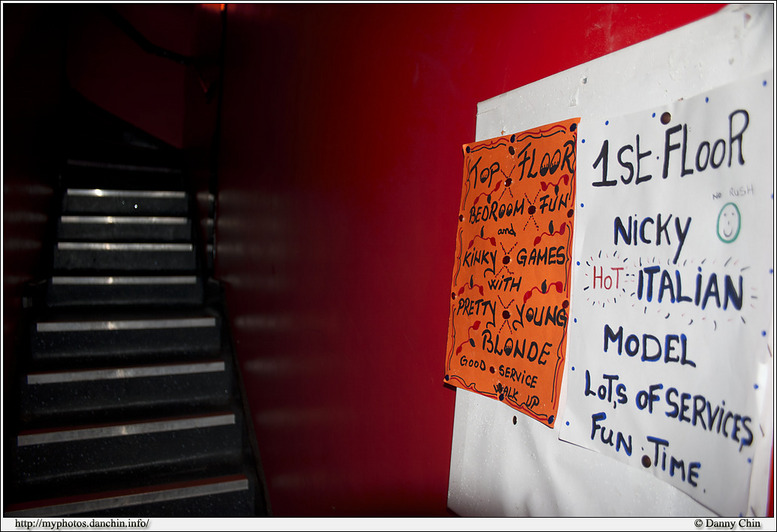 TOP FLOOR
BEDROOM FUN
and
KINKY GAMES
WITH
PRETTY YOUNG
BLONDE
GOOD SERVICE
WALK UP
1ST FLOOR
NO RUSH
NICKY
HOT ITALIAN
MODEL
LOT,S OF SERVICES
FUN TIME.
http://myphotos.danchin.info/
© Danny Chin